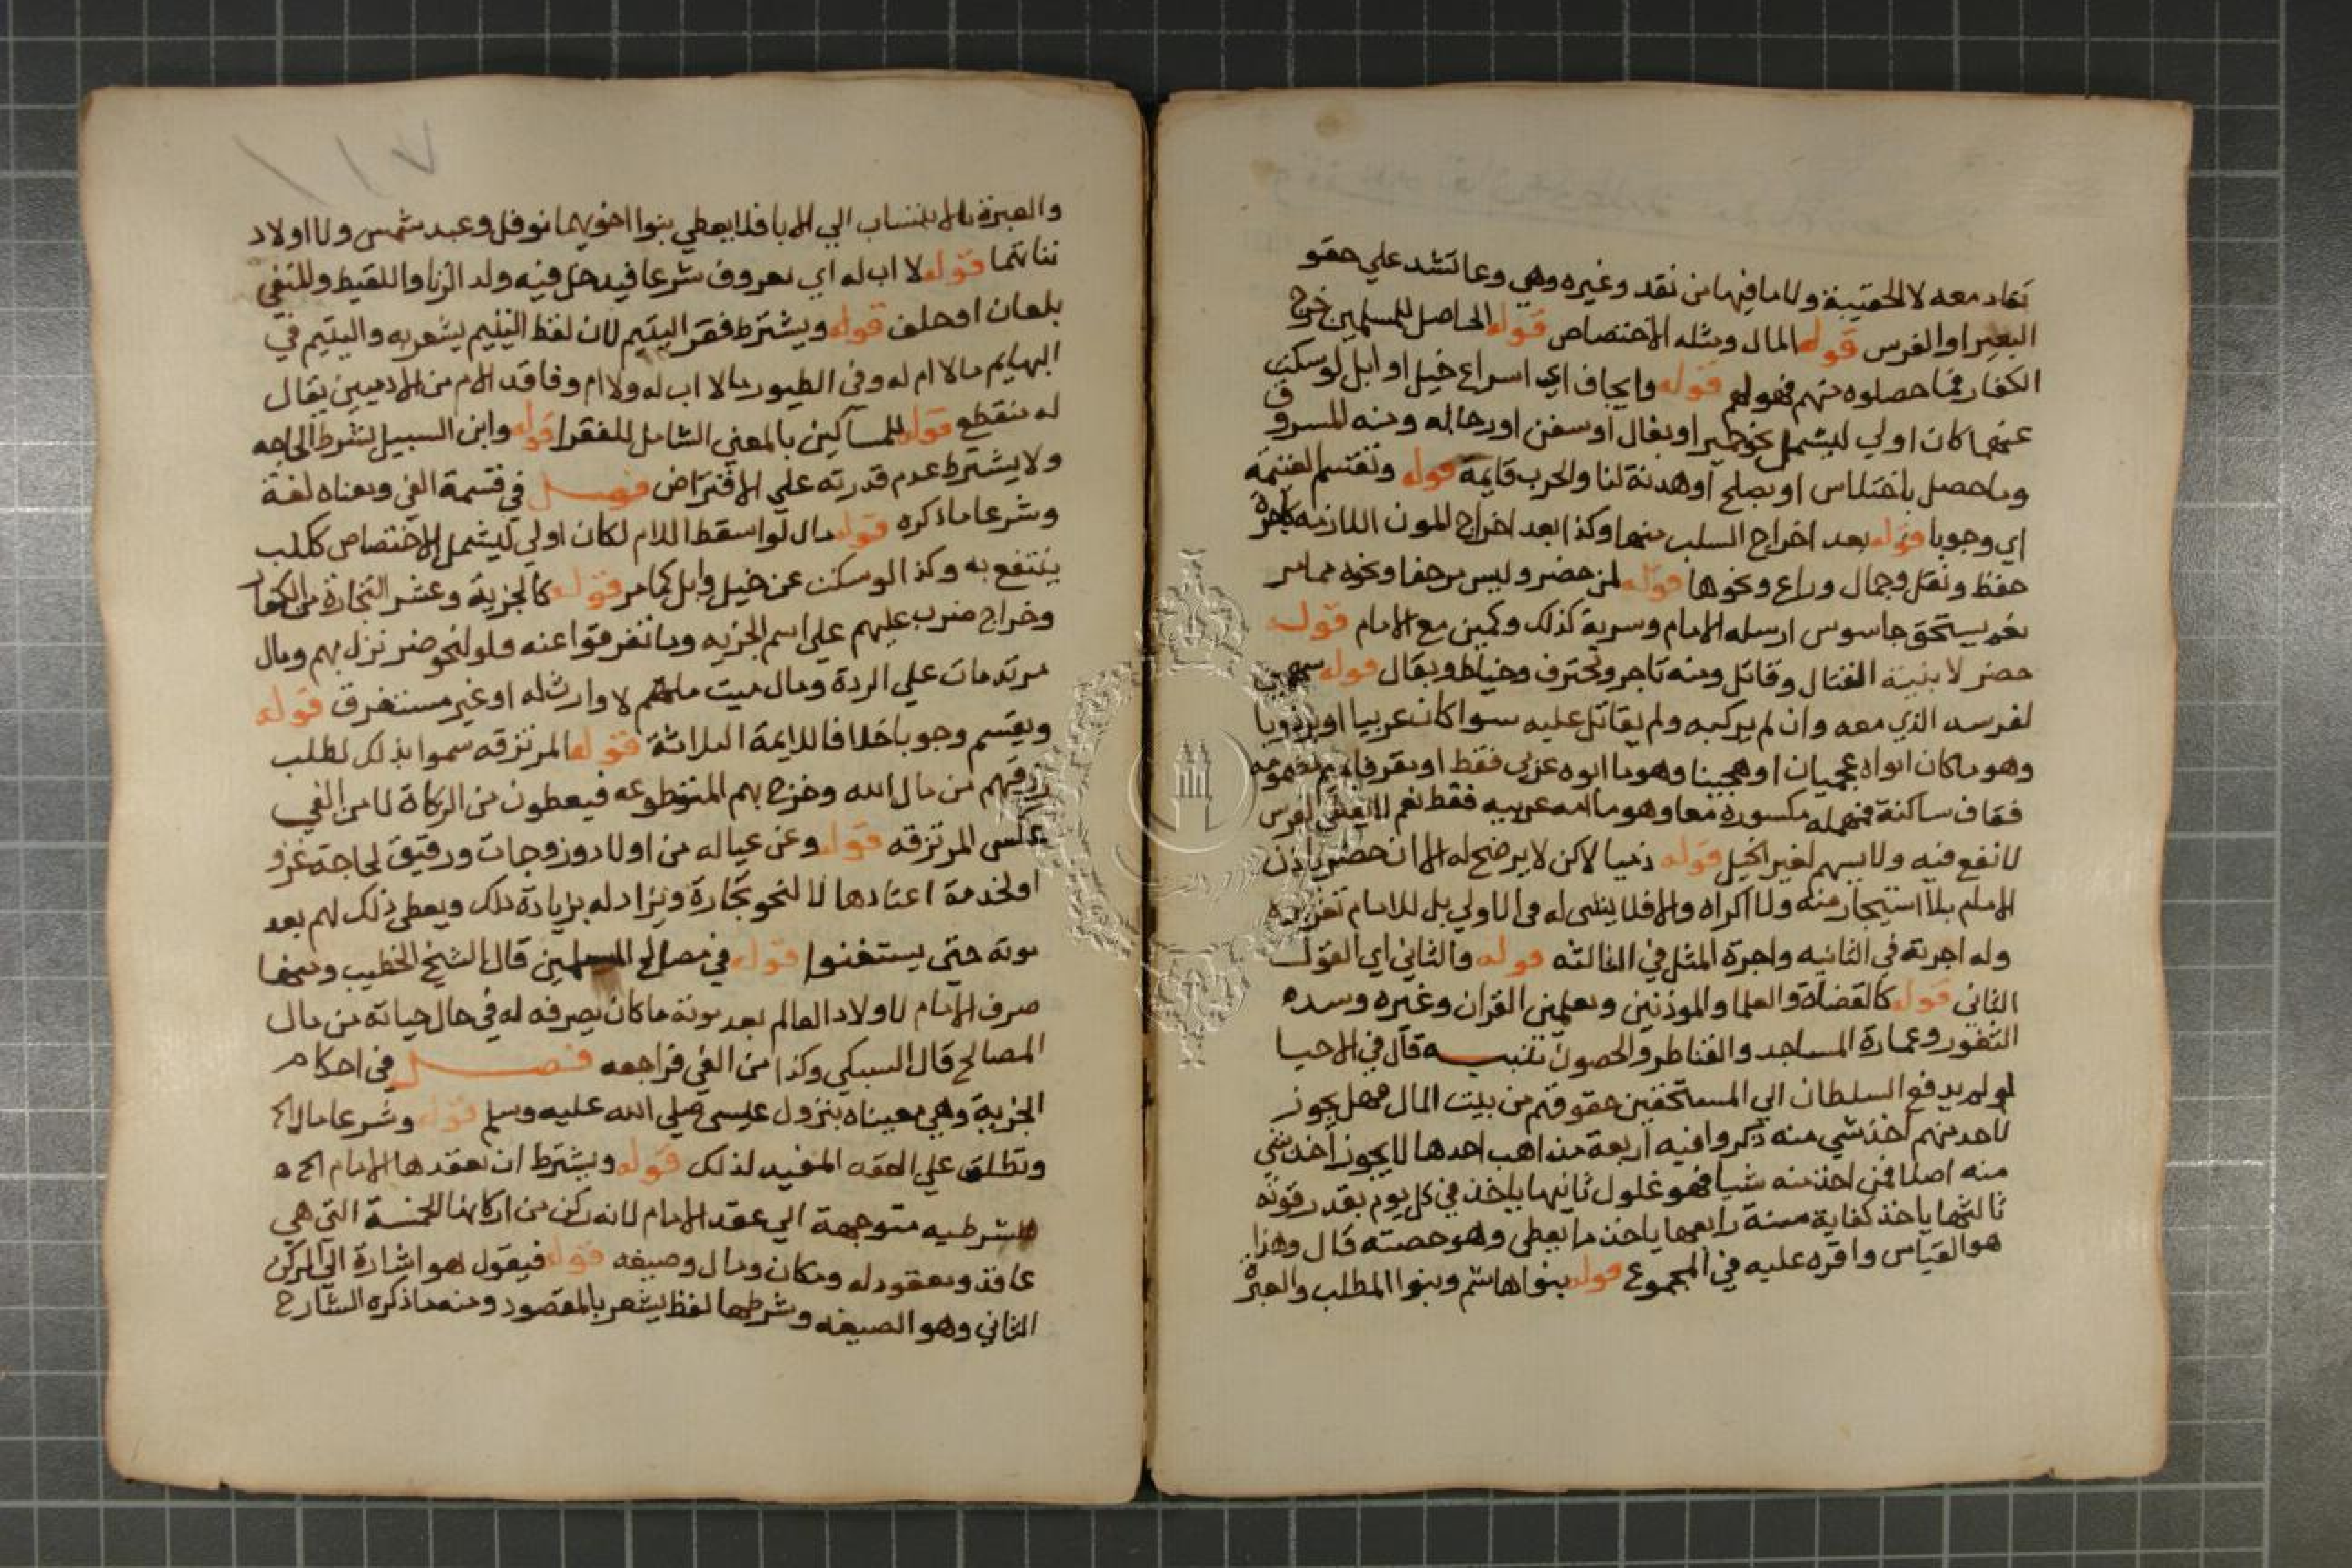 تقاد معه لا الحقيبة ولا ما فيها من نقد وغيره وهي وعا تشد علي حقو
البعير او الفرس قوله المال ومثله الاختصاص قوله الحاصل للمسلمين خرج
الكفار فما حصلوه منهم فهو لهم قوله وايجاف اي اسراع خيل او ابل لو سكت
عنهما كان اولي ليشمل نحو حمير او بغال او سفن او رجاله ومنه المسروق
وما حصل باختلاس او بصلح او هدنة لنا والحرب قايمة قوله وتقسم الغنيمة
اي وجوبا قوله بعد اخراج السلب منها وكذا بعد اخراج المون اللازمه كاجرة
حفظ ونقل وجمال وراع ونحوها قوله لمن حضر وليس مرجفا ونحوه مما مر
نعم يستحق جاسوس ارسله الامام وسرية كذلك وكمين مع الامام قوله
حضر لا بنية القتال وقاتل ومنه تاجر ومحترف وخياط وبقال قوله سهمين
لفرسه الذي معه وان لم يركبه ولم يقاتل عليه سوا كان عربيا او برذونا
وهو ما كان ابواه عجميان او هجينا وهو ما ابوه عربي فقط او مقرفا بميم مضمومه
فقاف ساكنة فمهمله مكسورة معا وهو ما امه عربيه فقط نعم لا يعطي لفرس
لا نفع فيه ولا يسهم لغير الخيل قوله ذميا لاكن لا يرضخ له الا ان حضر باذن
الامام بلا استيجار منه ولا اكراه والا فلا يشي له في الاولي بل للامام تعزيره
وله اجرته في الثانيه واجرة المثل في الثالثه قوله والثاني اي القول
الثاني قوله كالقضاة والعلما والموذنين ومعلمين القران وغيره وسده
الثغور وعمارة المساجد والقناطر والحصون تنبيه قال في الاحيا
لو لم يدفع السلطان الي المستحقين حقوقهم من بيت المال فهل يجوز
لاحد منهم اخذ شي منه ذكروا فيه اربعة مذاهب احدها لا يجوز اخذ شي
منه اصلا فمن اخذ منه شيا فهو غلول ثانيها ياخذ في كل يوم بقدر قوته
ثالثها ياخذ كفاية سنة رابعها ياخذ ما يعطي وهو حصته قال وهذا
هو القياس واقره عليه في المجموع قوله بنوا هاشم وبنوا المطلب والعبرة
والعبرة بالانتساب الي الابا فلا يعطي بنوا اخويهما نوفل وعبد شمس ولا اولاد
بناتهما قوله لا اب له اي معروف شرعا فيدخل فيه ولد الزنا واللقيط والمنفي
بلعان او حلف قوله ويشترط فقر اليتيم لان لفظ اليتيم يشعر به واليتيم في
البهايم ما لا ام له وفي الطيور ما لا اب له ولا ام وفاقد الام من الادميين يقال
له منقطع قوله للمساكين بالمعني الشامل للفقرا قوله وابن السبيل بشرط الحاجه
ولا يشترط عدم قدرته علي الاقتراض فصل في قسمة الفي ومعناه لغة
وشرعا ما ذكره قوله مال لو اسقط اللام لكان اولي ليشمل الاختصاص ككلب
ينتفع به وكذا لو سكت عن خيل وابل كما مر قوله كالجزية وعشر التجارة من الكفار
وخراج ضرب عليهم علي اسم الجزيه وما تفرقوا عنه ولو لنحو ضر نزل بهم ومال
مرتد مات علي الردة ومال ميت منهم لا وارث له او غير مستغرق قوله
ويقسم وجوبا خلافا للايمة الثلاثة قوله المرتزقه سموا بذلك لطلب
رزقهم من مال الله وخرج بهم المتطوعه فيعطون من الزكاة لا من الفي
عكس المرتزقه قوله وعن عياله من اولاد وزوجات ورقيق لحاجة غزو
او لخدمة اعتادها لا لنحو تجارة ويزاد له بزيادة ذلك ويعطي ذلك لهم بعد
موته حتي يستغنوا قوله في مصالح المسلمين قال الشيخ الخطيب ومنها
صرف الامام لاولاد العالم بعد موته ما كان يصرفه له في حال حياته من مال
المصالح قال السبكي وكذا من الفي فراجعه فصل في احكام
الجزية وهي مغياه بنزول عيسي صلي الله عليه وسلم قوله وشرعا مال الخ
وتطلق علي العقد المفيد لذلك قوله ويشترط ان يعقدها الامام الخ ه
فالشرطيه متوجهة الي عقد الامام لانه ركن من اركانها الخمسة التي هي
عاقد ومعقود له ومكان ومال وصيغه قوله فيقول هو اشارة الي الركن
الثاني وهو الصيغه وشرطها لفظ يشعر بالمقصود ومنه ما ذكره الشارح